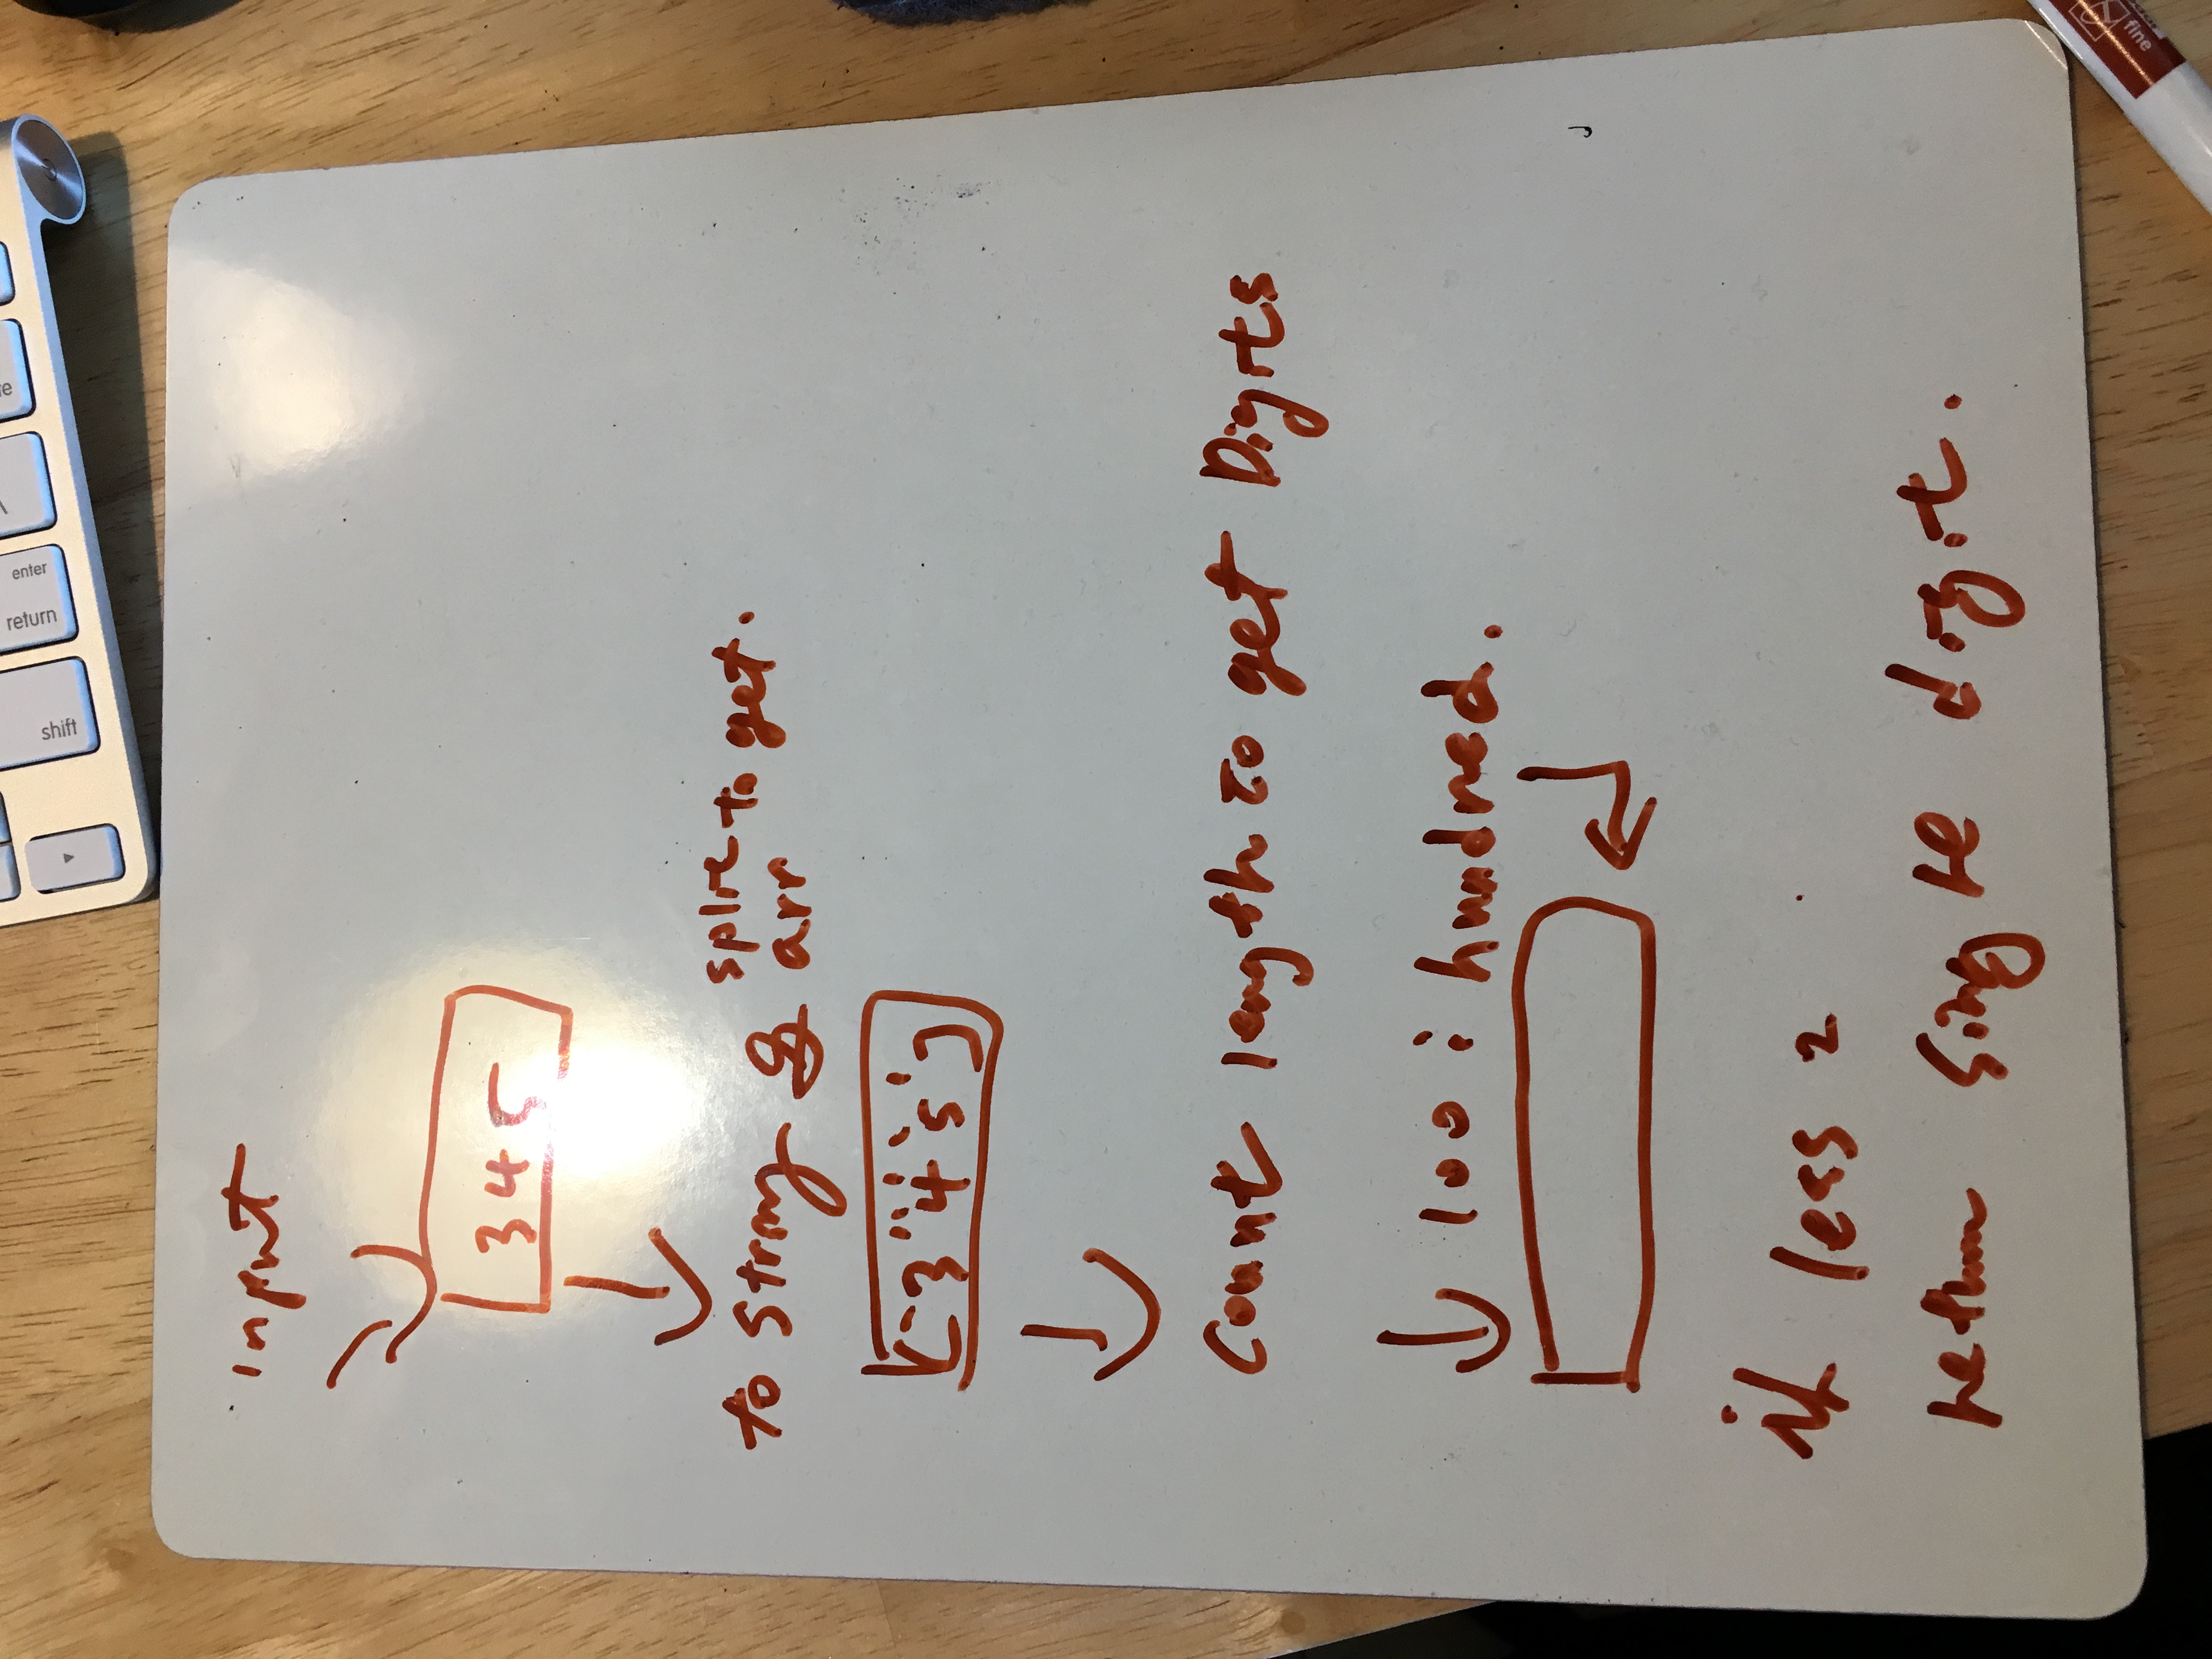 shift
enter
return
input
345
to string & split to get.
arr
['3''4''5']
Count length to get Digits
100 : hundred.
if less 2
return single digit.
fine